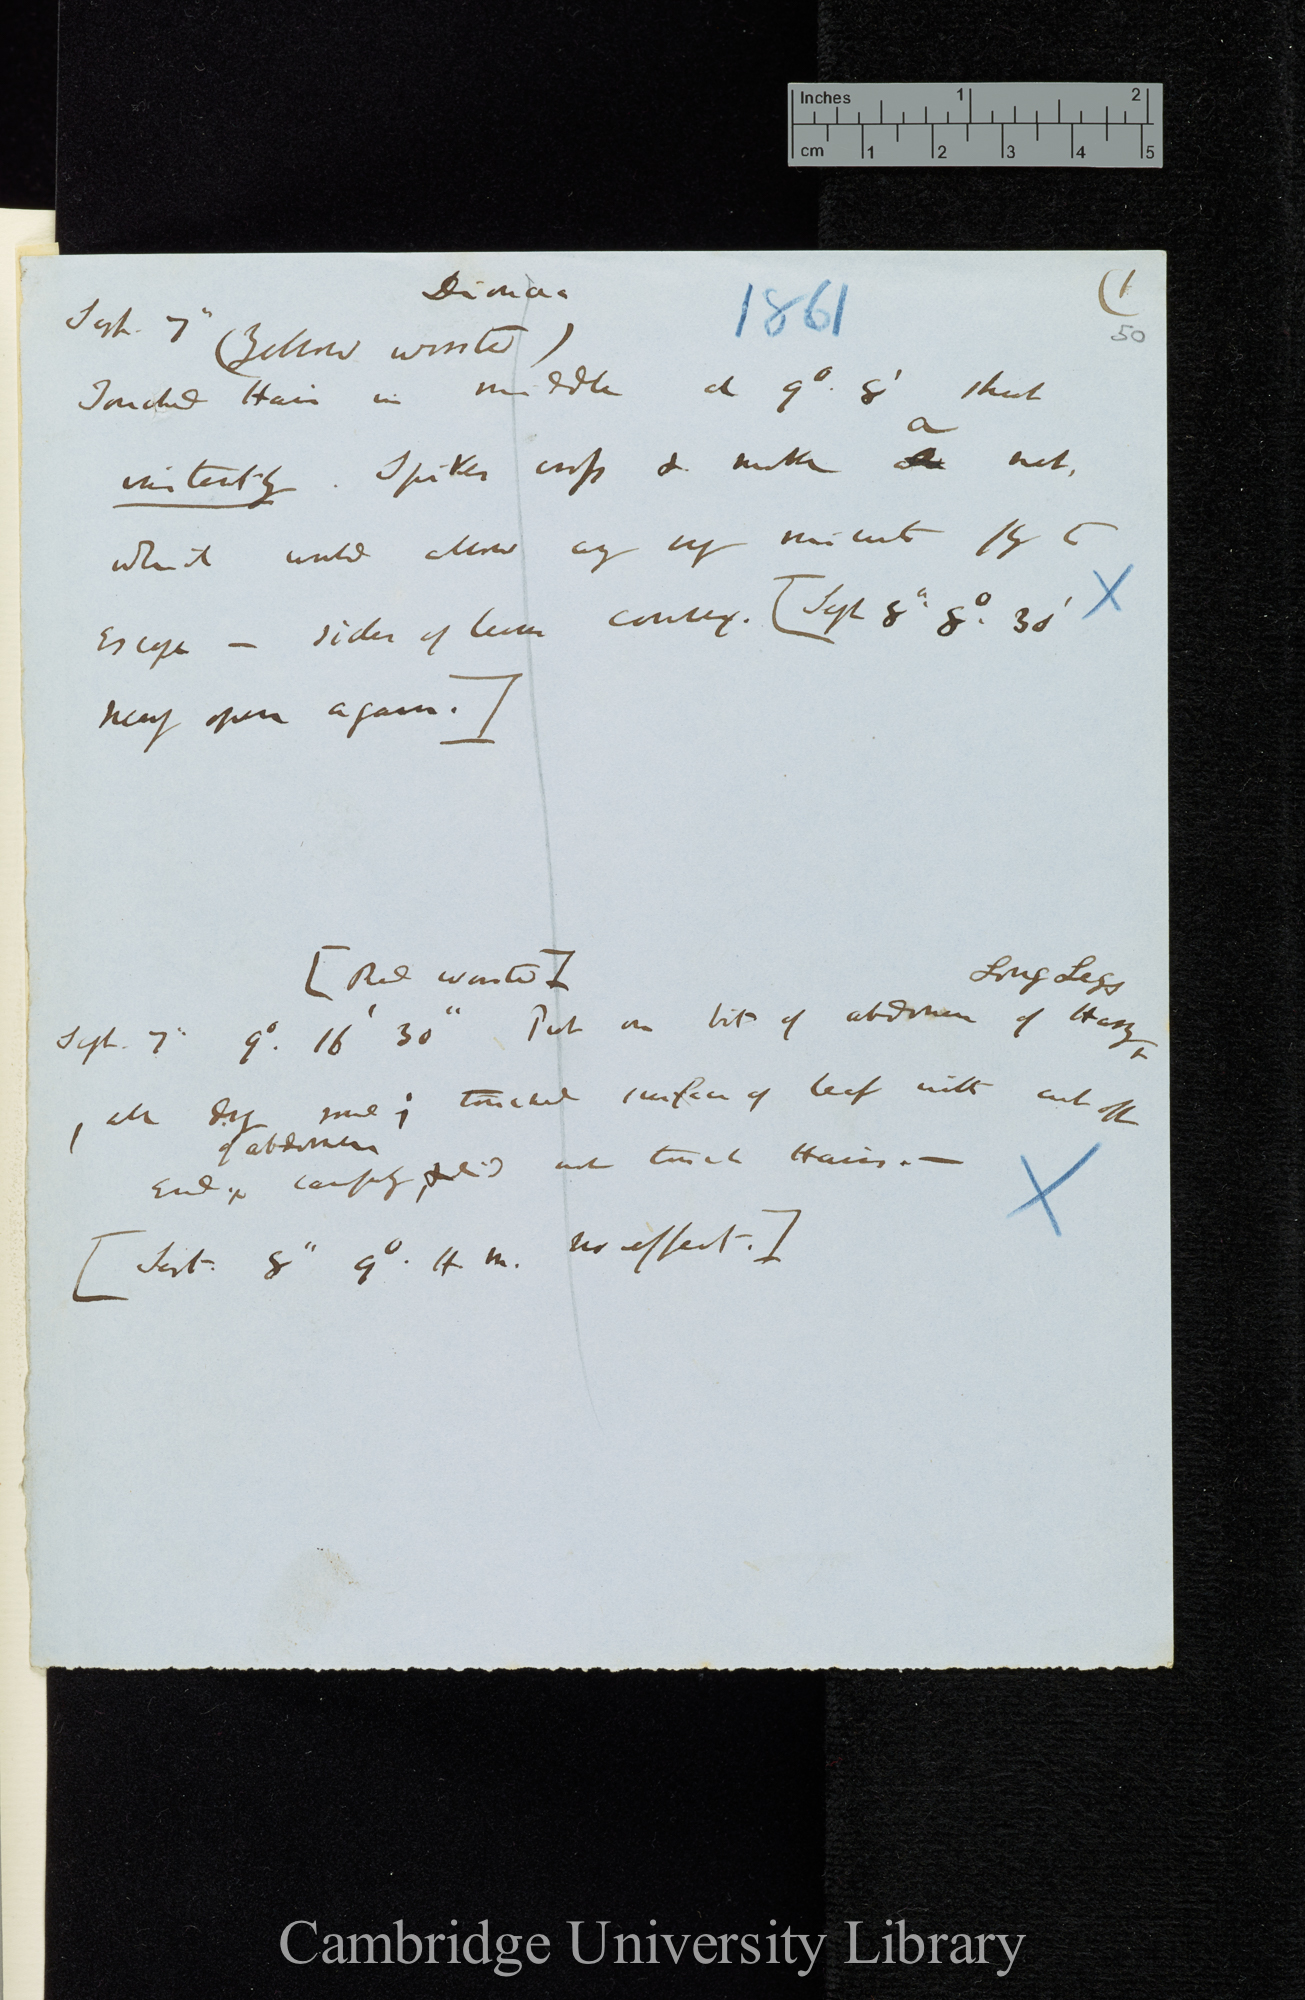 Inches 1 2
cm 1 2 3 4 5
Dionæa
1861
(1
50
Sept. 7" (Yellow worsted)
Touched Hair in middle at 9°. 8' shut
a
instantly. Spikes cross & make net,
which would allow any very minute fly to
escape — sides of leaves convex. [Sept 8" 8°. 30'
nearly open again.]
[Red worsted]
Long Legs
Sept. 7" 9°. 16' 30" Put on bit of abdomen of Harry
, all dry ; touched surface of leaf with cut off
of abdomen
end, carefully, did not touch Hairs. —
[Sept. 8" 9°. A. m. no effect.]
Cambridge University Library